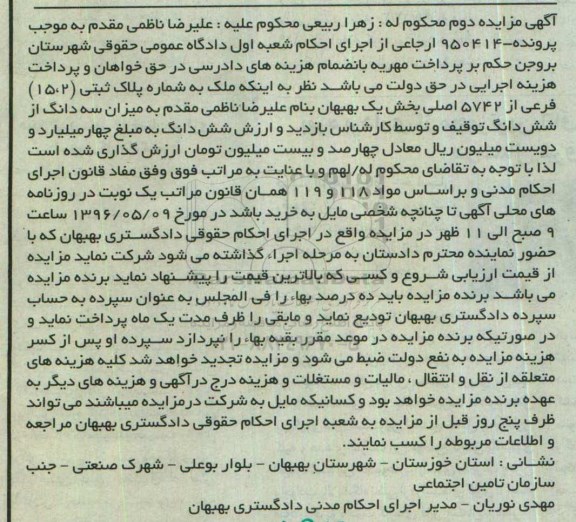 آگهی مزایده دوم محکوم له : زهرا ربیعی محکوم علیه : علیرضا ناظمی مقدم به موجب
پرونده-950414 ارجاعی از اجرای احکام شعبه اول دادگاه عمومی حقوقی شهرستان
بروجن حکم بر پرداخت مهریه بانضمام هزینه های دادرسی در حق خواهان و پرداخت
هزینه اجرایی در حق دولت می باشد نظر به اینکه ملک به شماره پلاک ثبتی (1502)
فرعی از 5742 اصلی بخش یک بهبهان بنام علیرضا ناظمی مقدم به میزان سه دانگ از
شش دانگ توقیف و توسط کارشناس بازدید و ارزش شش دانگ به مبلغ چهارمیلیارد و
دویست میلیون ریال معادل چهارصد و بیست میلیون تومان ارزش گذاری شده است
لذا با توجه به تقاضای محکوم له/لهم و با عنایت به مراتب فوق وفق مفاد قانون اجرای
احکام مدنی و براساس مواد 118 و 119 همان قانون مراتب یک نوبت در روزنامه
های محلی آگهی تا چنانچه شخصی مایل به خرید باشد در مورخ 1396/05/09 ساعت
9 صبح الی 11 ظهر در مزایده واقع در اجرای احکام حقوقی دادگستری بهبهان که با
حضور نماینده محترم دادستان به مرحله اجراء گذاشته می شود شرکت نماید مزایده
از قیمت ارزیابی شروع و کسی که بالاترین قیمت را پیشنهاد نماید برنده مزایده
می باشد برنده مزایده باید ده درصد بهاء را فی المجلس به عنوان سپرده به حساب
سپرده دادگستری بهبهان تودیع نماید و مابقی را ظرف مدت یک ماه پرداخت نماید و
در صورتیکه برنده مزایده در موعد مقرر بقیه بهاء را نپردازد سپرده او پس از کسر
هزینه مزایده به نفع دولت ضبط می شود و مزایده تجدید خواهد شد کلیه هزینه های
متعلقه از نقل و انتقال ، مالیات و مستغلات و هزینه درج درآگهی و هزینه های دیگر به
عهده برنده مزایده خواهد بود و کسانیکه مایل به شرکت درمزایده میباشند می تواند
ظرف پنج روز قبل از مزایده به شعبه اجرای احکام حقوقی دادگستری بهبهان مراجعه
و اطلاعات مربوطه را کسب نمایند.
نشانی : استان خوزستان - شهرستان بهبهان - بلوار بوعلی - شهرک صنعتی - جنب
سازمان تامین اجتماعی
مهدی نوریان - مدیر اجرای احکام مدنی دادگستری بهبهان